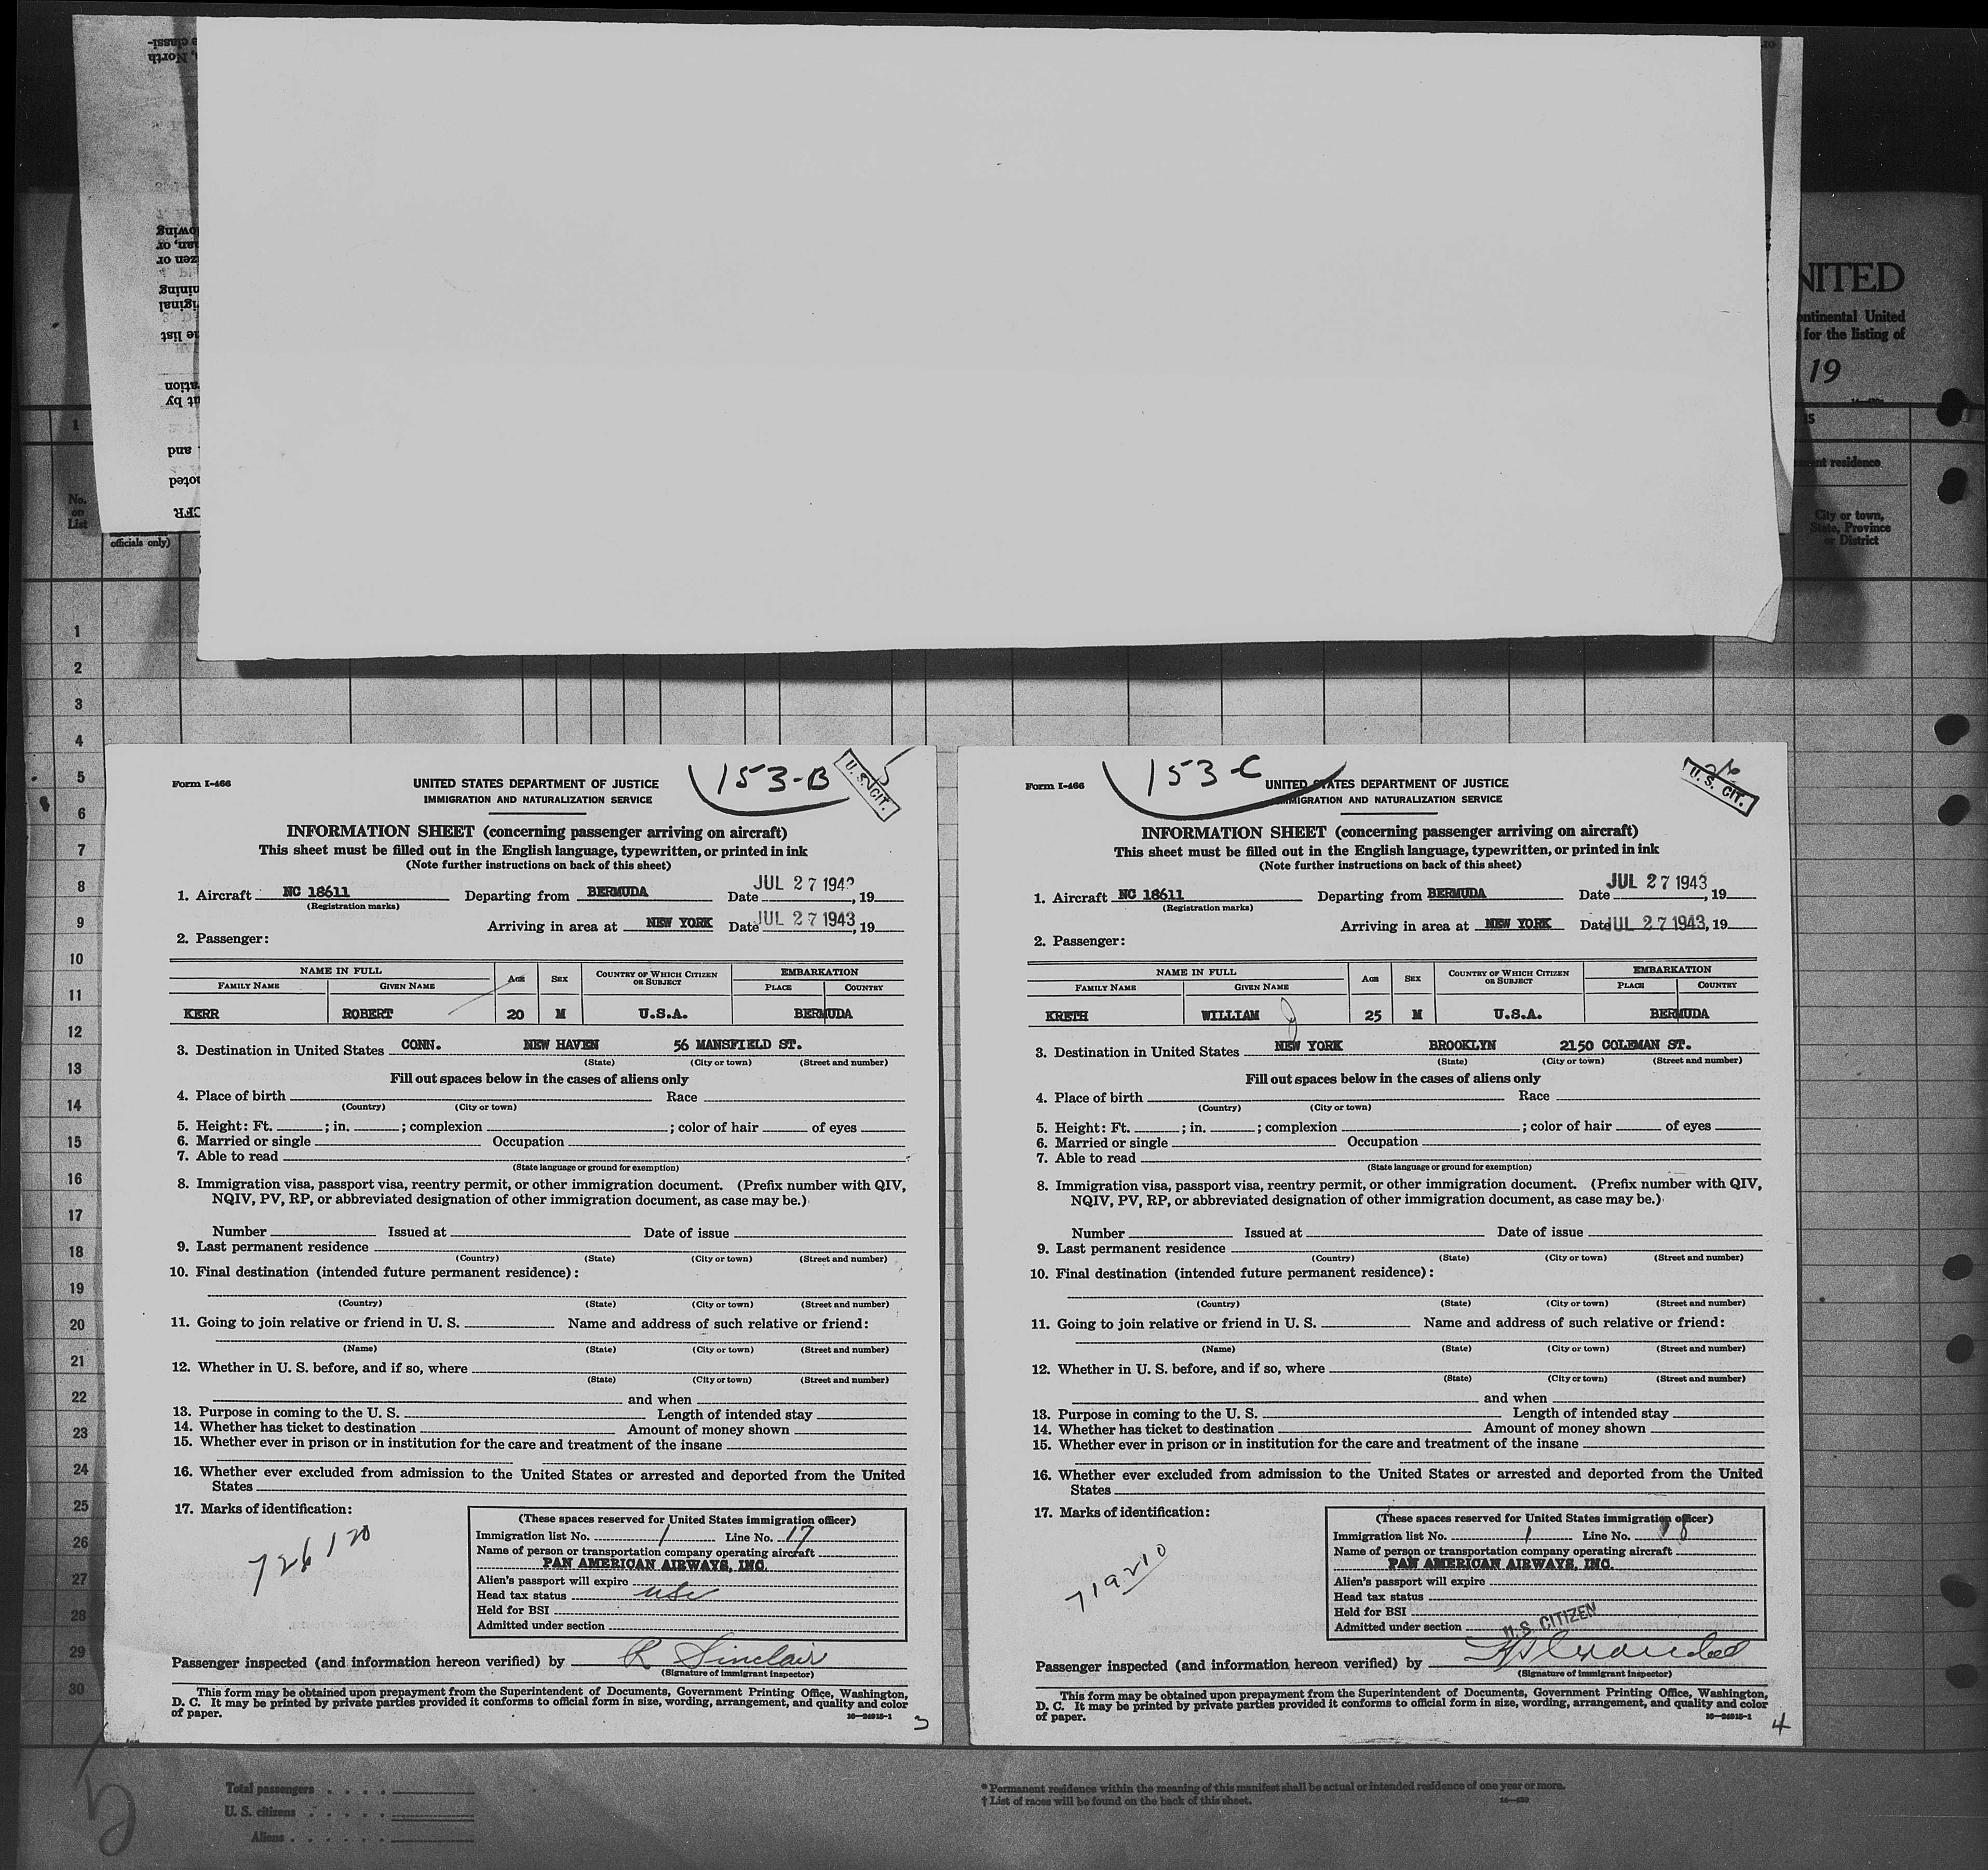 NITED
ontinental United
for the listing of
19
15
residence
City or town,
State, Province
or District
No.
on
List
officials only)
1
1
2
3
4
5
6
7
8
9
10
11
12
13
14
15
16
17
18
19
20
21
22
23
24
25
26
27
28
29
30
Form I-466
153-B
U. S. CIT.
UNITED STATES DEPARTMENT OF JUSTICE
IMMIGRATION AND NATURALIZATION SERVICE
INFORMATION SHEET (concerning passenger arriving on aircraft)
This sheet must be filled out in the English language, typewritten, or printed in ink
(Note further instructions on back of this sheet)
1. Aircraft NC 18611 Departing from BERMUDA Date JUL 27 1943, 19
(Registration marks)
Arriving in area at NEW YORK Date JUL 27 1943, 19
2. Passenger:
NAME IN FULL AGE SEX COUNTRY OF WHICH CITIZEN OR SUBJECT EMBARKATION
FAMILY NAME GIVEN NAME PLACE COUNTRY
KERR ROBERT 20 M U.S.A. BERMUDA
3. Destination in United States CONN. NEW HAVEN 56 MANSFIELD ST.
(State) (City or town) (Street and number)
Fill out spaces below in the cases of aliens only
4. Place of birth Race
(Country) (City or town)
5. Height: Ft. ; in. ; complexion ; color of hair of eyes
6. Married or single Occupation
7. Able to read
(State language or ground for exemption)
8. Immigration visa, passport visa, reentry permit, or other immigration document. (Prefix number with QIV,
NQIV, PV, RP, or abbreviated designation of other immigration document, as case may be.)
Number Issued at Date of issue
9. Last permanent residence
(Country) (State) (City or town) (Street and number)
10. Final destination (intended future permanent residence):
(Country) (State) (City or town) (Street and number)
11. Going to join relative or friend in U. S. Name and address of such relative or friend:
(Name) (State) (City or town) (Street and number)
12. Whether in U. S. before, and if so, where
(State) (City or town) (Street and number)
and when
13. Purpose in coming to the U. S. Length of intended stay
14. Whether has ticket to destination Amount of money shown
15. Whether ever in prison or in institution for the care and treatment of the insane
16. Whether ever excluded from admission to the United States or arrested and deported from the United
States
17. Marks of identification:
726120
(These spaces reserved for United States immigration officer)
Immigration list No. 1 Line No. 17
Name of person or transportation company operating aircraft
PAN AMERICAN AIRWAYS, INC.
Alien's passport will expire
Head tax status usc
Held for BSI
Admitted under section
Passenger inspected (and information hereon verified) by R Sinclair
(Signature of immigrant inspector)
This form may be obtained upon prepayment from the Superintendent of Documents, Government Printing Office, Washington,
D. C. It may be printed by private parties provided it conforms to official form in size, wording, arrangement, and quality and color
of paper.
16—24915-1
3
Form I-466
153-C
U. S. CIT.
UNITED STATES DEPARTMENT OF JUSTICE
IMMIGRATION AND NATURALIZATION SERVICE
INFORMATION SHEET (concerning passenger arriving on aircraft)
This sheet must be filled out in the English language, typewritten, or printed in ink
(Note further instructions on back of this sheet)
1. Aircraft NC 18611 Departing from BERMUDA Date JUL 27 1943, 19
(Registration marks)
Arriving in area at NEW YORK Date JUL 27 1943, 19
2. Passenger:
NAME IN FULL AGE SEX COUNTRY OF WHICH CITIZEN OR SUBJECT EMBARKATION
FAMILY NAME GIVEN NAME PLACE COUNTRY
KRETH WILLIAM 25 M U.S.A. BERMUDA
3. Destination in United States NEW YORK BROOKLYN 2150 COLEMAN ST.
(State) (City or town) (Street and number)
Fill out spaces below in the cases of aliens only
4. Place of birth Race
(Country) (City or town)
5. Height: Ft. ; in. ; complexion ; color of hair of eyes
6. Married or single Occupation
7. Able to read
(State language or ground for exemption)
8. Immigration visa, passport visa, reentry permit, or other immigration document. (Prefix number with QIV,
NQIV, PV, RP, or abbreviated designation of other immigration document, as case may be.)
Number Issued at Date of issue
9. Last permanent residence
(Country) (State) (City or town) (Street and number)
10. Final destination (intended future permanent residence):
(Country) (State) (City or town) (Street and number)
11. Going to join relative or friend in U. S. Name and address of such relative or friend:
(Name) (State) (City or town) (Street and number)
12. Whether in U. S. before, and if so, where
(State) (City or town) (Street and number)
and when
13. Purpose in coming to the U. S. Length of intended stay
14. Whether has ticket to destination Amount of money shown
15. Whether ever in prison or in institution for the care and treatment of the insane
16. Whether ever excluded from admission to the United States or arrested and deported from the United
States
17. Marks of identification:
719210
(These spaces reserved for United States immigration officer)
Immigration list No. 1 Line No. 18
Name of person or transportation company operating aircraft
PAN AMERICAN AIRWAYS, INC.
Alien's passport will expire
Head tax status
Held for BSI
Admitted under section U.S. CITIZEN
Passenger inspected (and information hereon verified) by
(Signature of immigrant inspector)
This form may be obtained upon prepayment from the Superintendent of Documents, Government Printing Office, Washington,
D. C. It may be printed by private parties provided it conforms to official form in size, wording, arrangement, and quality and color
of paper.
16—24915-1
4
Total passengers
U. S. citizens
Aliens
* Permanent residence within the meaning of this manifest shall be actual or intended residence of one year or more.
† List of races will be found on the back of this sheet.